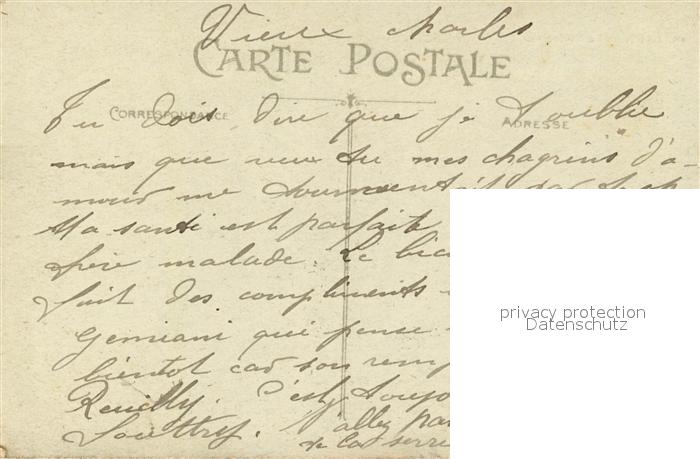 Vieux Charles
CARTE POSTALE
CORRESPONDANCE
ADRESSE
Tu dois dire que je t'oublie
mais que veux tu mes chagrins d'a-
mour me
Ma santé est parfaite
frère malade. Le
fait des compliments
Gemiani qui pense
bientot car son
Reuilly. C'est
allez
de la
privacy protection
Datenschutz